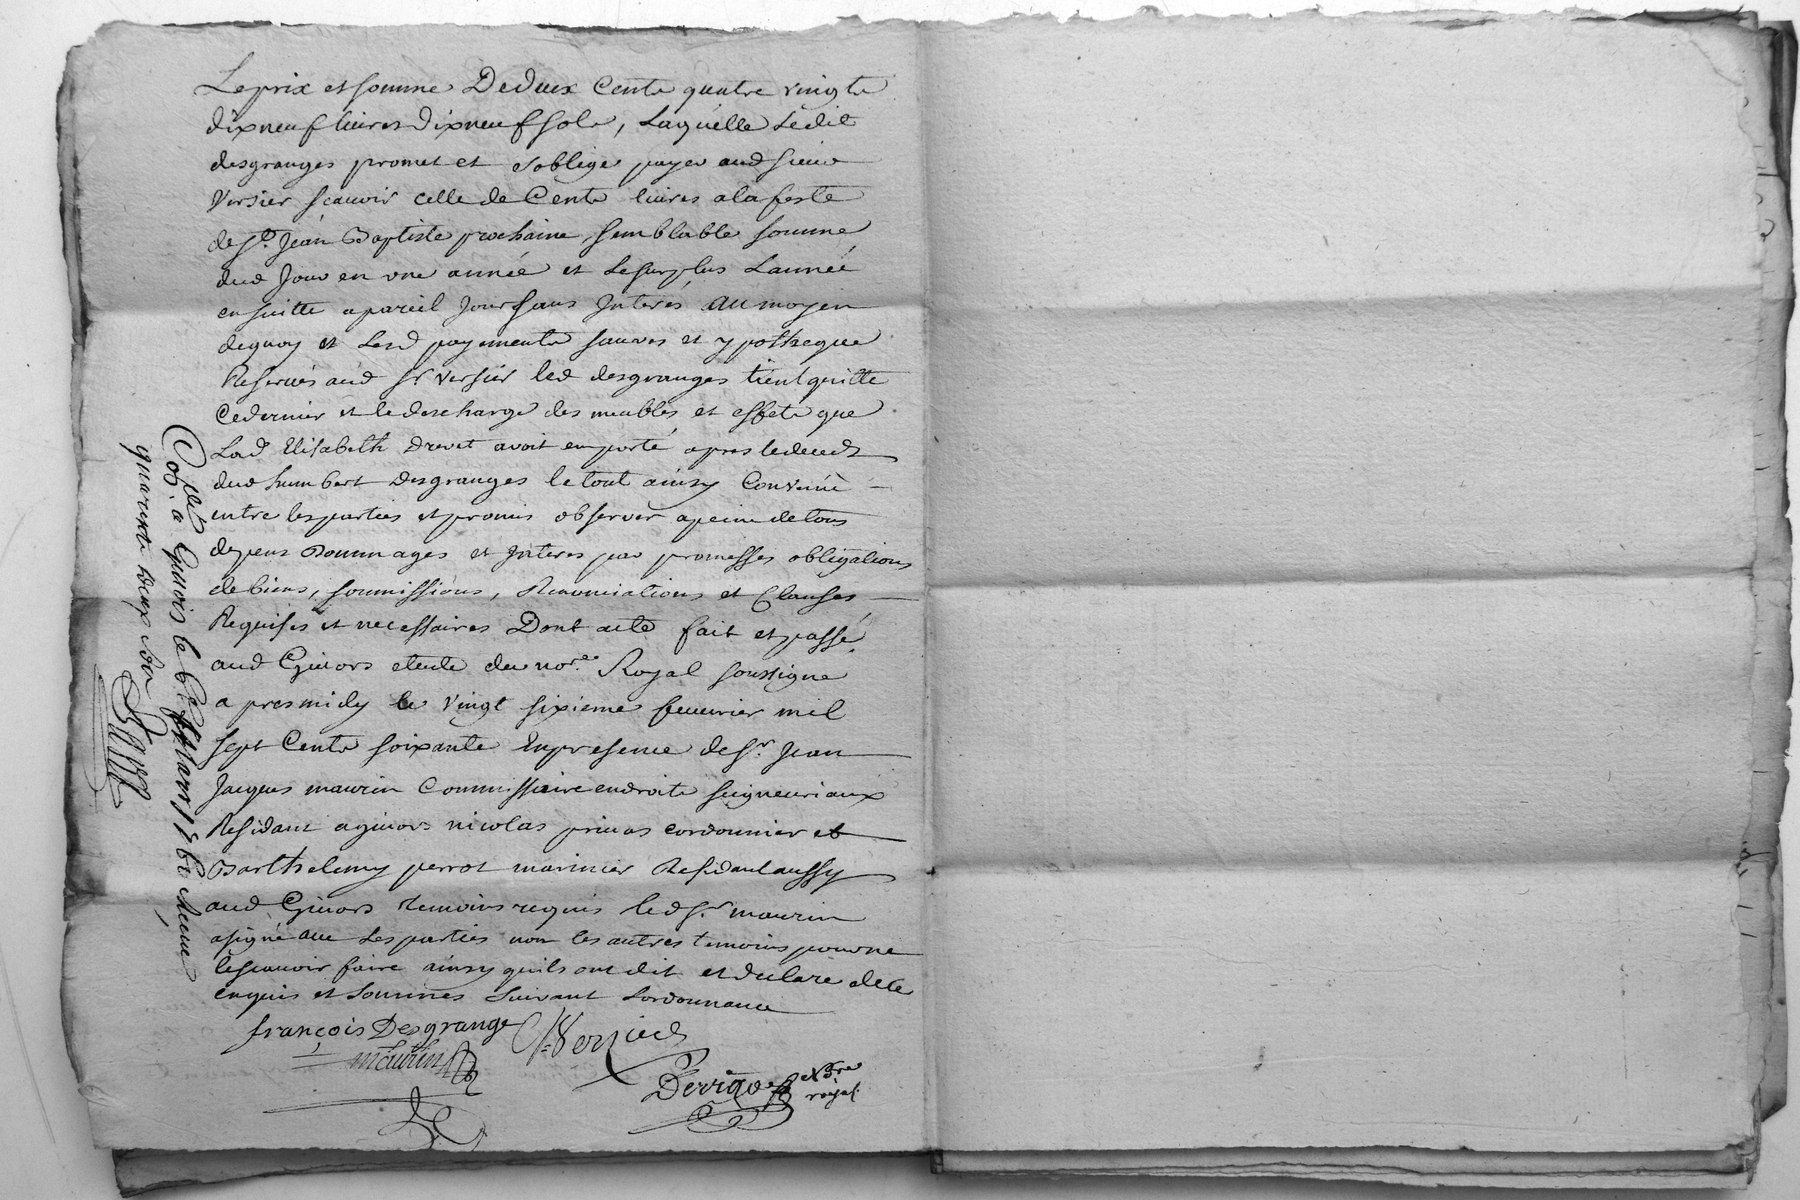 Le prix et somme De deux Cents quatre vingts
dix neuf livres dix neuf sols, Laquelle Ledit
desgranges promet et s'oblige payer aud sieur
Versier scavoir celle de Cents livres a la feste
de St. Jean Baptiste prochaine, semblable somme
dud Jour en une année et Le surplus Lannée
ensuitte a pareil Jour sans Interes, au moyen
dequoy et Lesd payements sauves et ypotheque
Reservés aud sr Versier led desgranges tient quitte
Ce dernier et le descharge des meubles et effets que
Lad Elisabeth Drevet avoit emporté apres le deceds
dud humbert Desgranges le tout ainsy Convenu
entre les parties et promis observer a peine de tous
depens Dommages et Interes par promesses obligations
de biens, soumissions, Renonciations et Clauses
Requises et necessaires Dont acte fait et passé
aud Givors etude du nore. Royal soussigné
apres midy le vingt sixieme fevvrier mil
sept Cents soixante En presence de sr. Jean
Jacques maurin Commissaire en droits seigneuriaux
Residant a givors nicolas primas cordonnier et
Barthelemy perrot marinier Residant aussy
aud Givors temoins requis led sr. maurin
a signé avec Les parties non les autres temoins pour ne
le scavoir faire ainsy quils ont dit et declaré de ce
enquis et sommés suivant Lordonnance
françois Desgrange
Versier
maurin
Derrigo
Nre
royal
a Givors le Mars 1760 Reçu
quarente deux sols